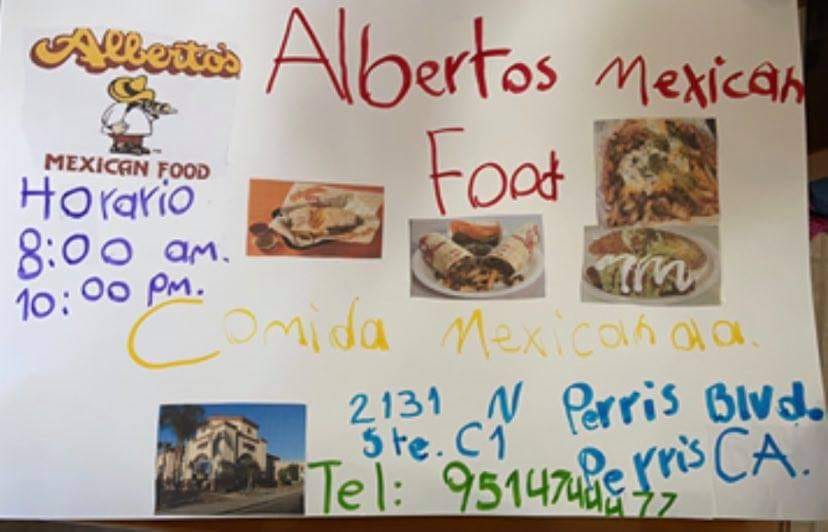 Alberto's
MEXICAN FOOD
Albertos Mexican
Food
Horario
8:00 am.
10:00 pm.
Comida Mexicanaa.
2131 N Perris Blvd.
Ste. C1 Perris CA.
Tel: